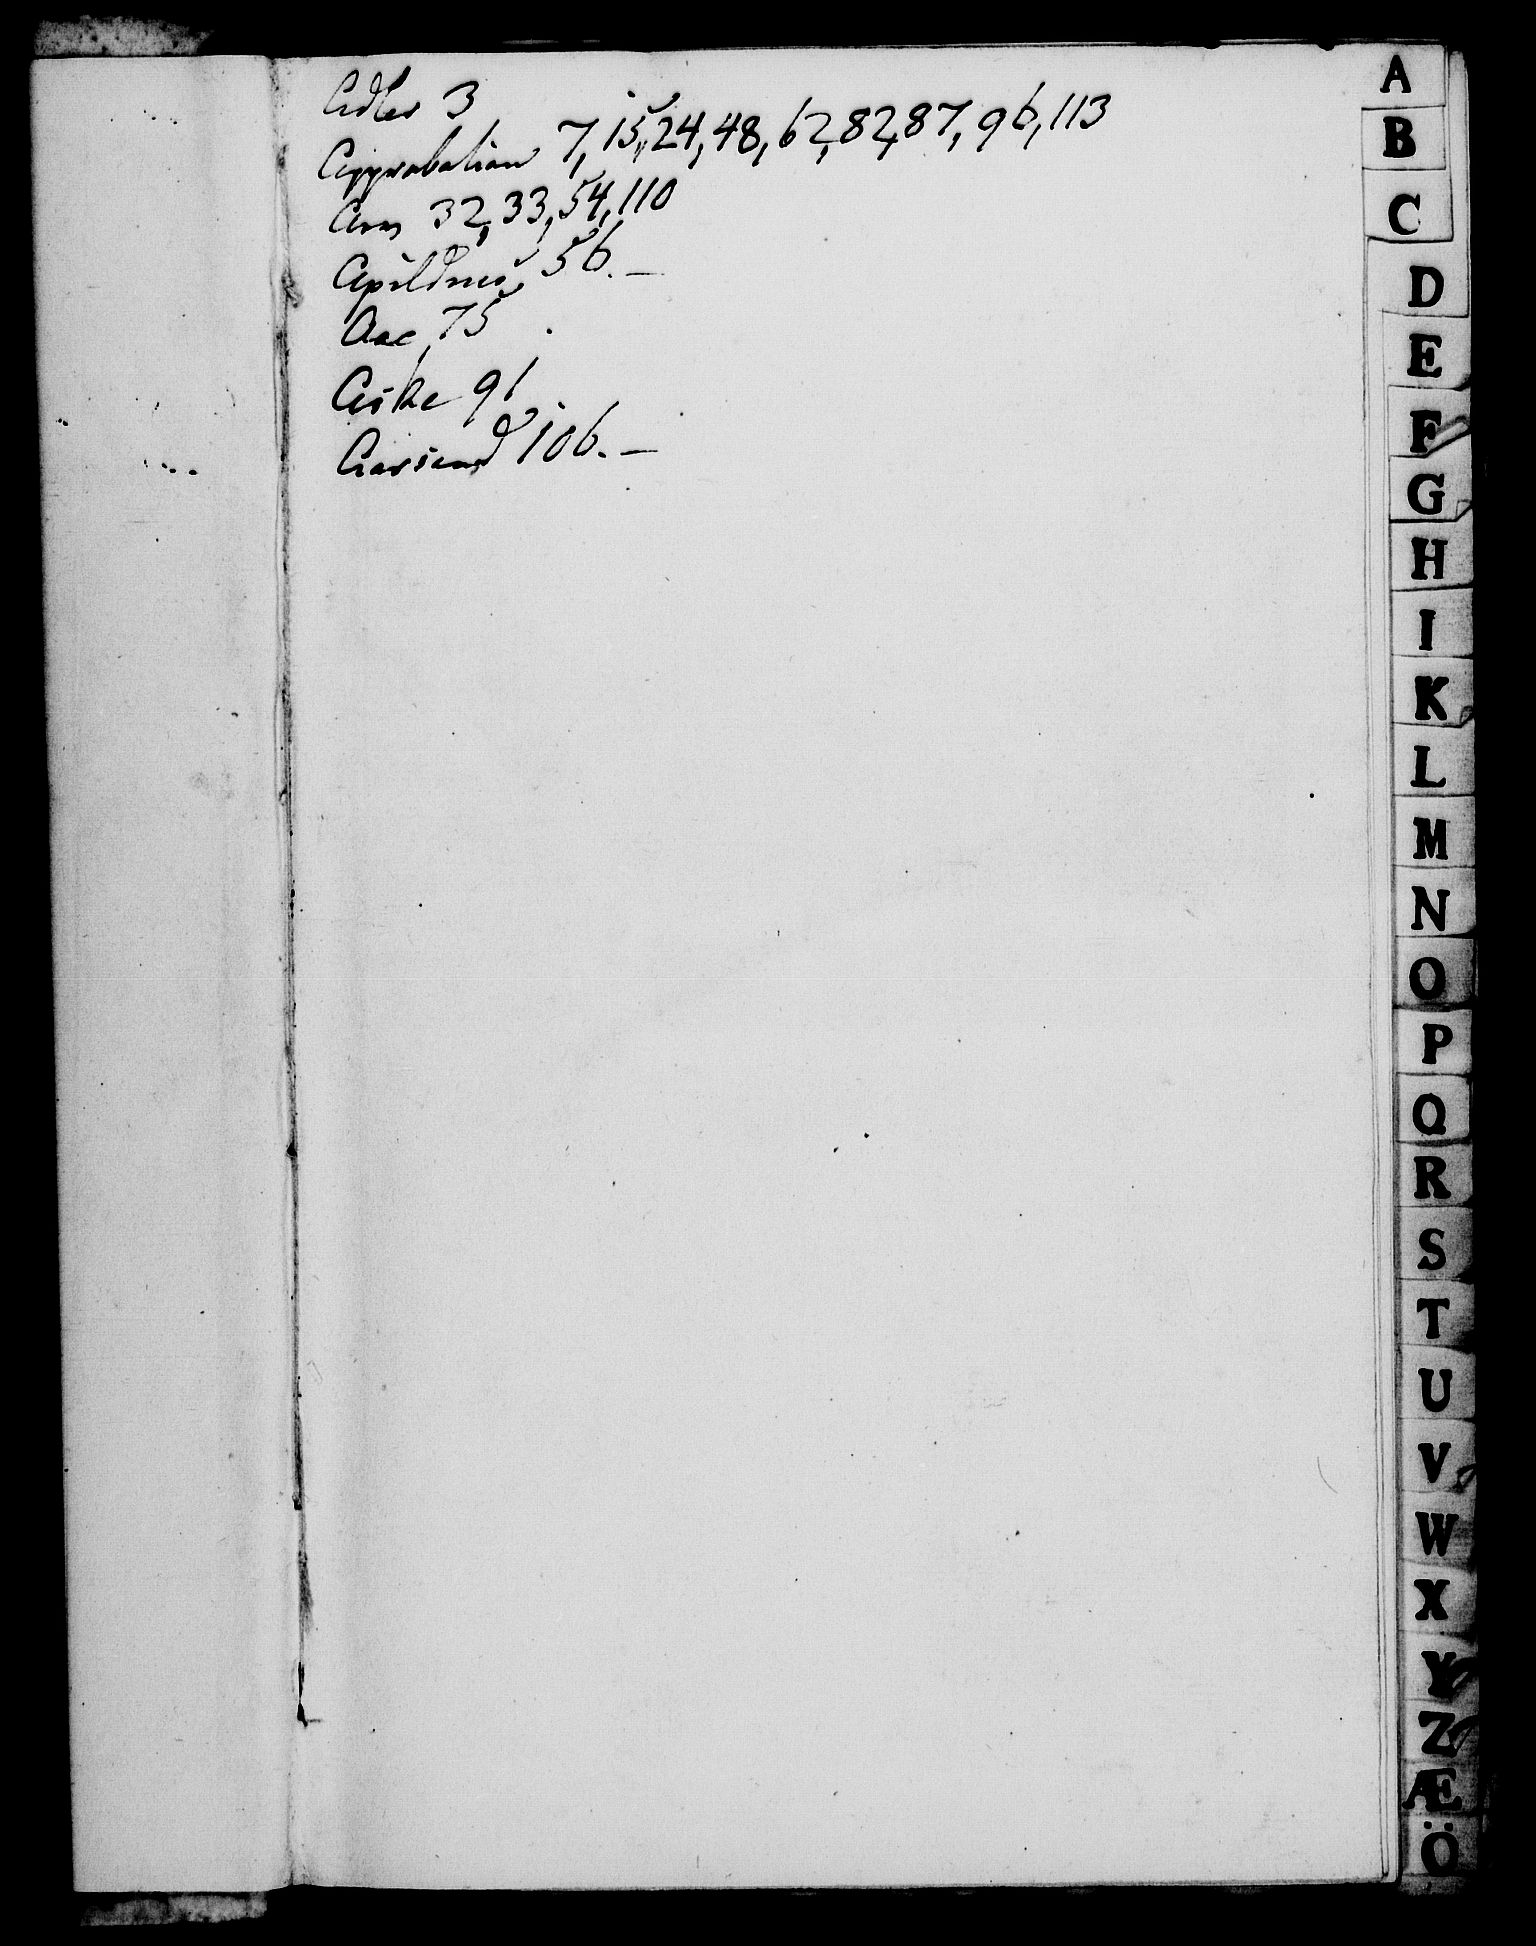 Adler 3
Approbation 7, 15, 24, 48, 62, 82, 87, 96, 113
Arv 32, 33, 54, 110
56. —
Aae, 75
Aske 91
106. —
A
B
C
D
E
F
G
H
I
K
L
M
N
O
P
Q
R
S
T
U
V
W
X
Y
Z
Æ
Ö